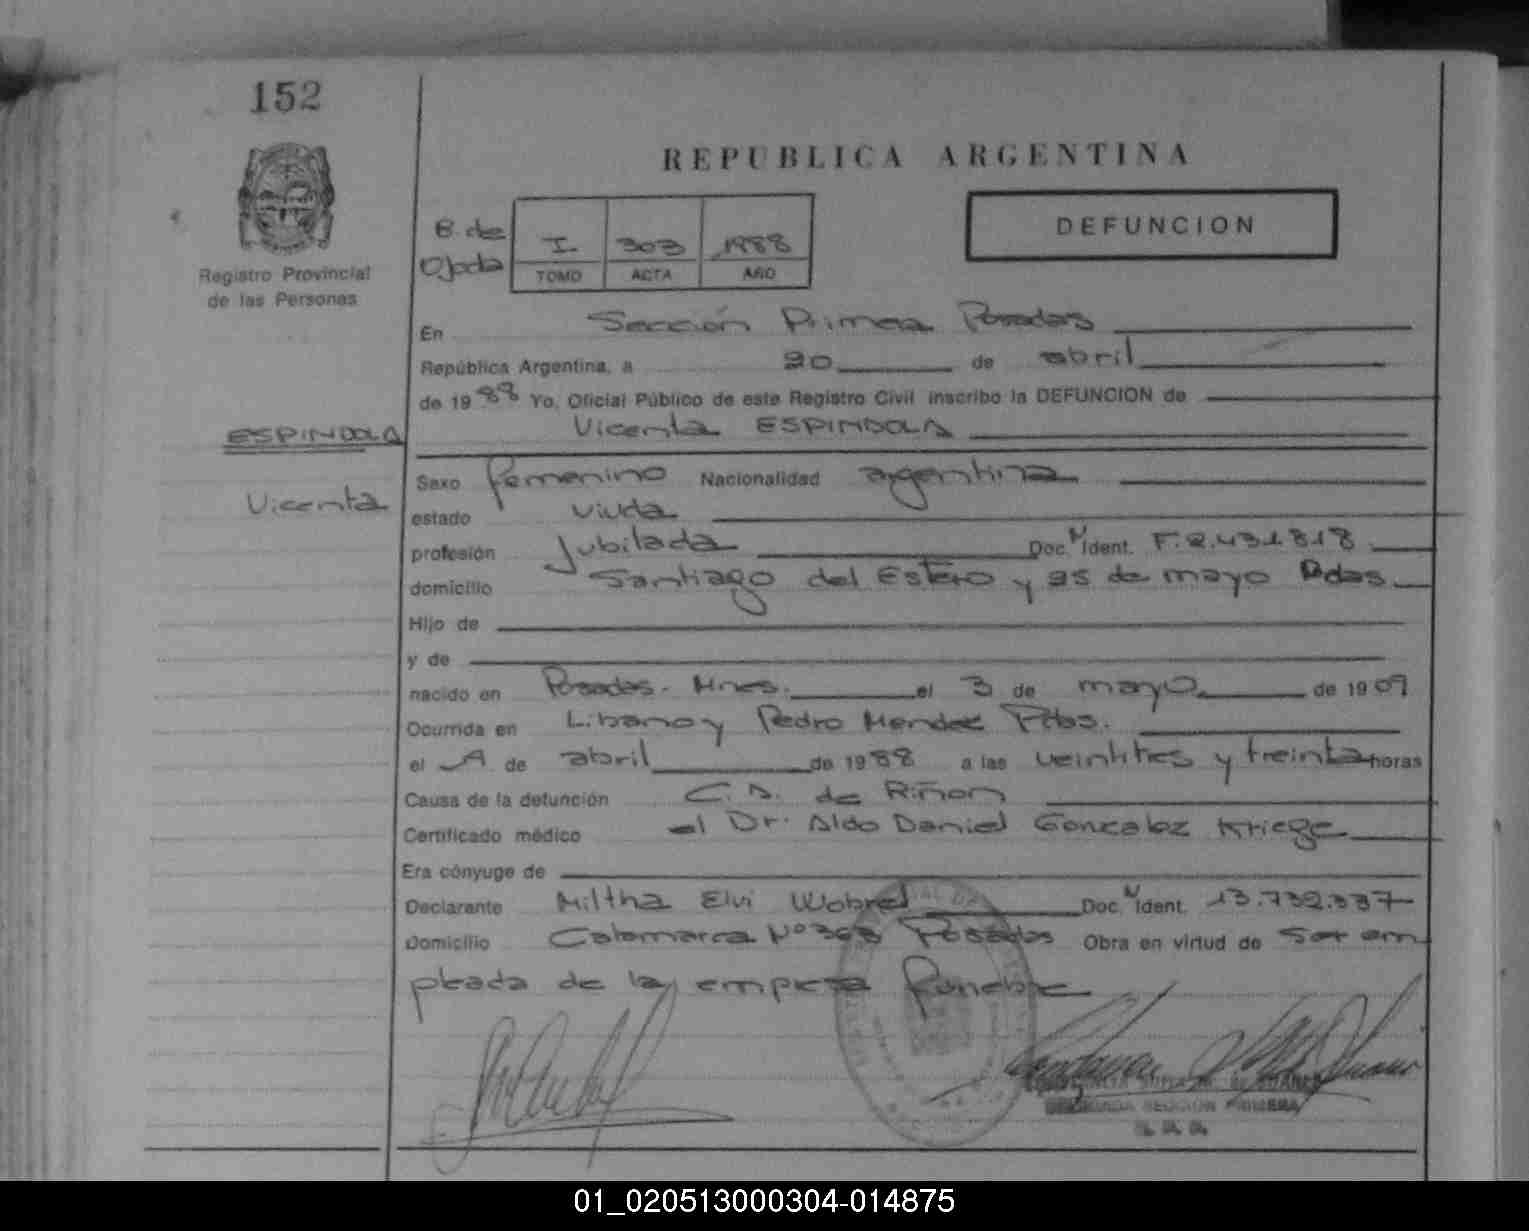 152
REPUBLICA ARGENTINA
DEFUNCION
B. de Ojeda
I 303 1988
TOMO ACTA AÑO
Registro Provincial
de las Personas
En Sección Primera Posadas
República Argentina, a 20 de abril
de 1988 Yo, Oficial Público de este Registro Civil inscribo la DEFUNCION de
ESPINDOLA Vicenta ESPINDOLA
Sexo femenino Nacionalidad argentina
Vicenta
estado viuda
profesión Jubilada Doc. N Ident. F. 2.431.818
domicilio Santiago del Estero y 25 de mayo Pdas
Hijo de
y de
nacido en Posadas. Mnes. el 3 de mayo de 1909
Ocurrida en Libano y Pedro Mendez Pdas.
el de abril de 1988 a las veintitres y treinta horas
Causa de la defunción C.A. de Riñon
Certificado médico el Dr. Aldo Daniel Gonzalez Kriege
Era cónyuge de
Declarante Miltha Elvi Wobred Doc. N Ident. 13.732.337
Domicilio Catamarca Nº 363 Posadas Obra en virtud de Ser em
pleada de la empresa funebre
SECCION PRIMERA
01_020513000304-014875